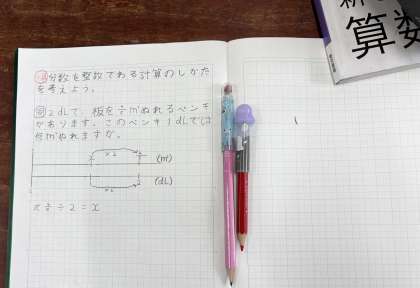 分数を整数でわる計算のしかた
を考えよう。
問 2dLで、板を m²ぬれるペンキ
があります。このペンキ1dLでは
何m²ぬれますか。
(m²)
(dL)
÷2=x
算数